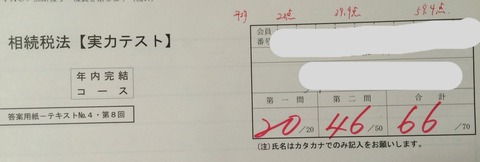 平均 29.9点 59.4点
相続税法【実力テスト】
年内完結
コース
答案用紙－テキストNo.4・第8回
会員
番号
第一問 第二問 合計
20/20 46/50 66/70
(注)氏名はカタカナでのみ記入をお願いします。